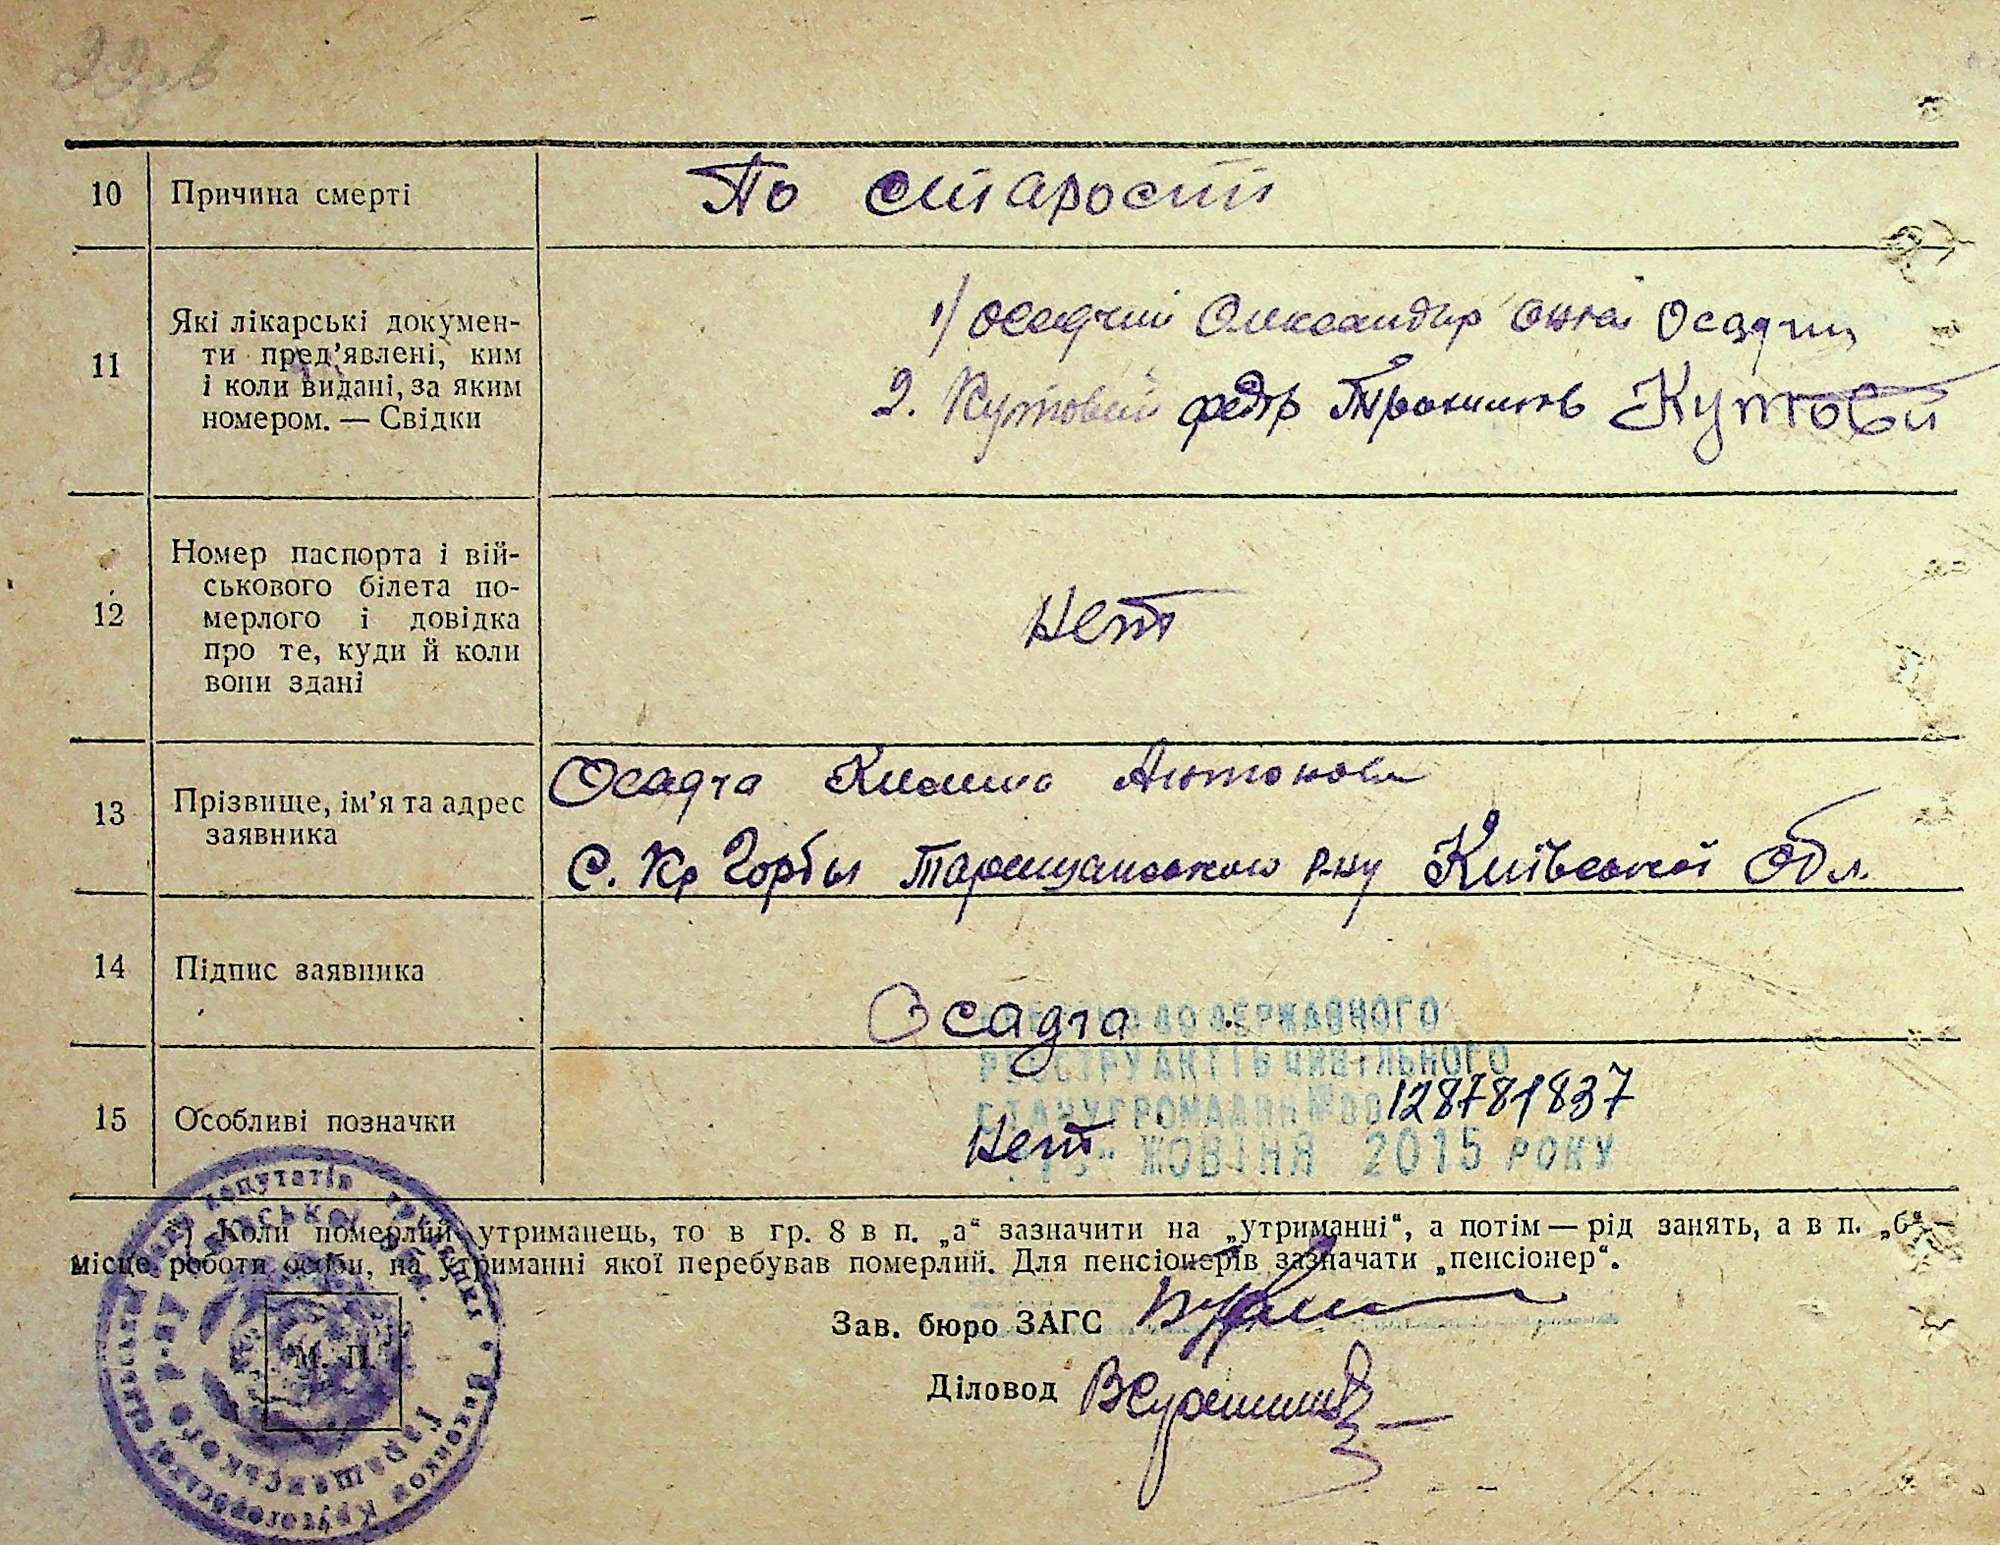 10 Причина смерті По старости
11 Які лікарські докумен-
ти пред’явлені, ким
і коли видані, за яким
номером. — Свідки
1) Осадчий Олександр Осадчи
2. Кутовий федр Кутови
12 Номер паспорта і вій-
ськового білета по-
мерлого і довідка
про те, куди й коли
вони здані
Нет
13 Прізвище, ім’я та адрес
заявника
Осадча Антонови
С. Кр Горбы Таращанського р-ну Київської обл.
14 Підпис заявника
Осадча
ДО ДЕРЖАВНОГО
РЕЄСТРУ АКТІВ ЦИВІЛЬНОГО
СТАНУ ГРОМАДЯН № 00128781837
15 Особливі позначки Нет
ЖОВТНЯ 2015 РОКУ
*) Коли померлий утриманець, то в гр. 8 в п. „а“ зазначити на „утриманні“, а потім — рід занять, а в п. „б“—
місце роботи особи, на утриманні якої перебував померлий. Для пенсіонерів зазначати „пенсіонер“.
Зав. бюро ЗАГС
Діловод
М. П.
Виконком Крутогорбської сільської ради депутатів трудящих
Таращанського р-ну Київської обл.